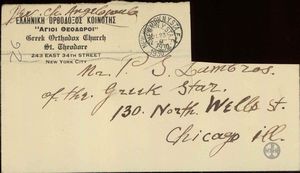 Rev. Ch. Angelopoulo
ΕΛΛΗΝΙΚΗ ΟΡΘΟΔΟΞΟΣ ΚΟΙΝΟΤΗΣ
"ΑΓΙΟΙ ΘΕΟΔΩΡΟΙ"
Greek Orthodox Church
St. Theodore
243 EAST 34TH STREET
NEW YORK CITY
Mr. P. S. Lambros.
of the Greek Star.
130. North. Wells St.
Chicago Ill.